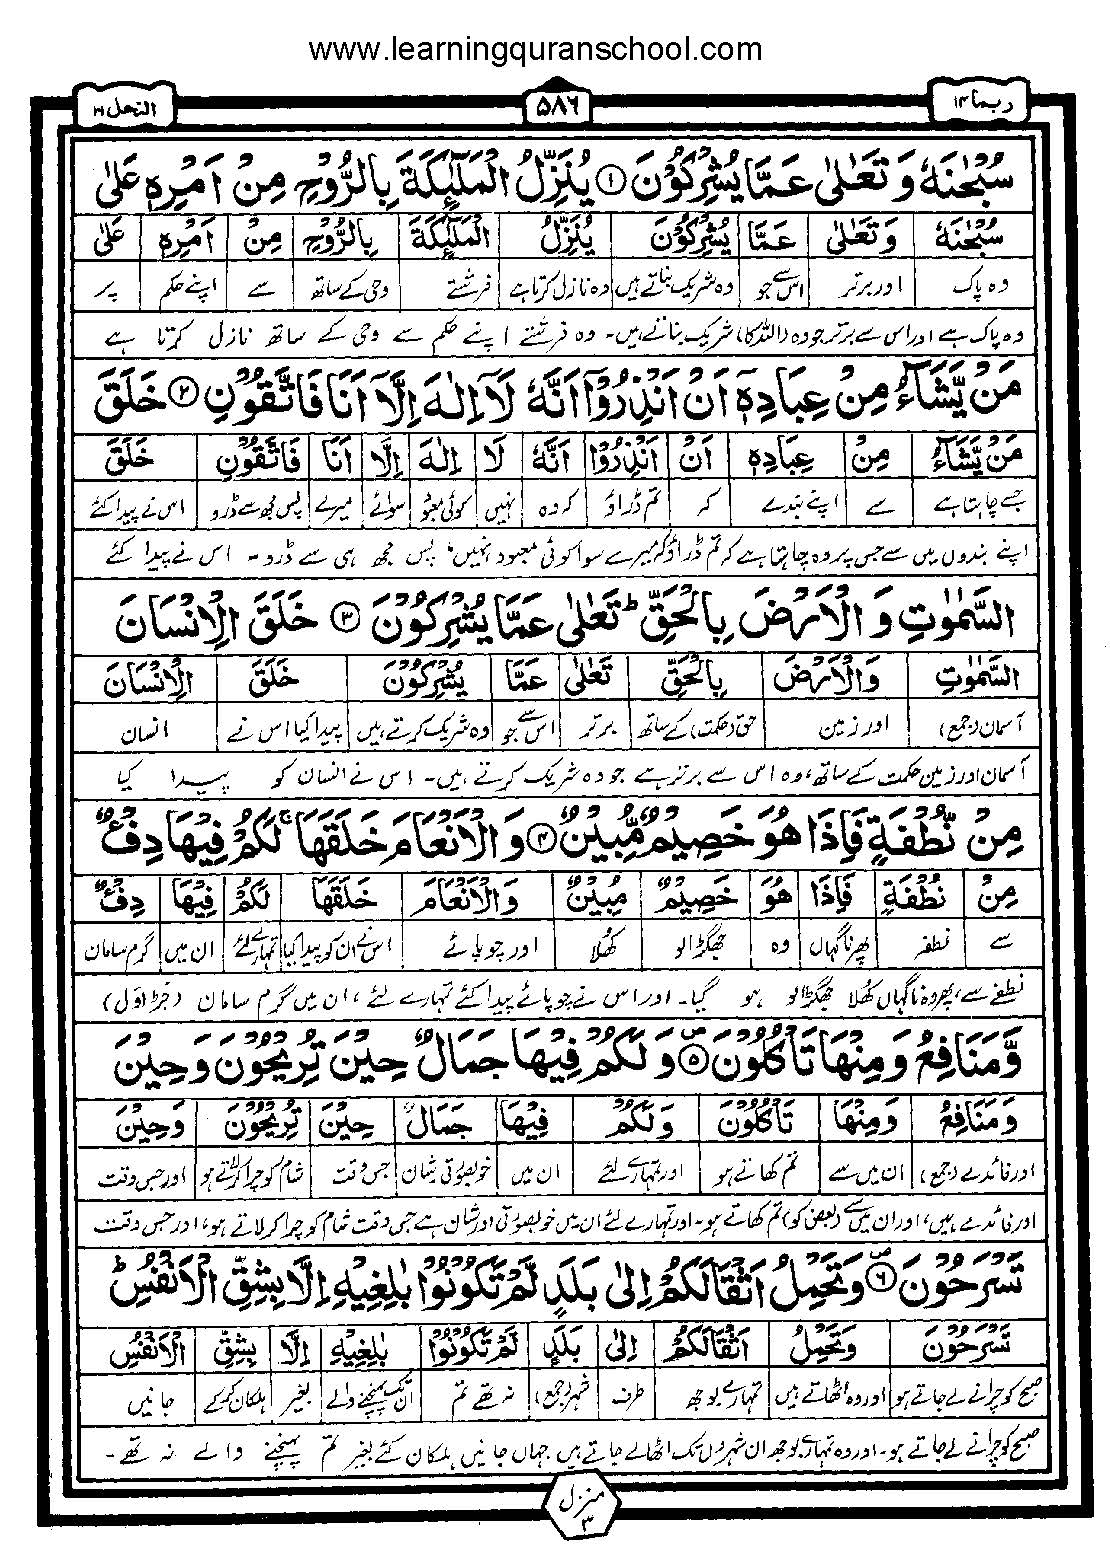 www.learningquranschool.com
ربما ۱۴
۵۸۶
النحل ۱۶
سُبْحٰنَهٗ وَ تَعٰلٰی عَمَّا یُشْرِكُوْنَ ۱ یُنَزِّلُ الْمَلٰٓئِكَةَ بِالرُّوْحِ مِنْ اَمْرِهٖ عَلٰی
سُبْحٰنَهٗ وَتَعٰلٰی عَمَّا یُشْرِكُوْنَ یُنَزِّلُ الْمَلٰٓئِكَةَ بِالرُّوْحِ مِنْ اَمْرِهٖ عَلٰی
وہ پاک اور برتر اس سے جو وہ شریک بناتے ہیں وہ نازل کرتا ہے فرشتے وحی کے ساتھ سے اپنے حکم پر
وہ پاک ہے اور اس سے برتر جو وہ (اللہ کا) شریک بناتے ہیں۔ وہ فرشتے اپنے حکم سے وحی کے ساتھ نازل کرتا ہے
مَنْ یَّشَآءُ مِنْ عِبَادِهٖۤ اَنْ اَنْذِرُوْۤا اَنَّهٗ لَاۤ اِلٰهَ اِلَّاۤ اَنَا فَاتَّقُوْنِ ۲ خَلَقَ
مَنْ یَّشَآءُ مِنْ عِبَادِهٖ اَنْ اَنْذِرُوْۤا اَنَّهٗ لَا اِلٰهَ اِلَّا اَنَا فَاتَّقُوْنِ خَلَقَ
جسے چاہتا ہے سے اپنے بندے کہ تم ڈراؤ کہ وہ نہیں کوئی معبود سوائے میرے پس مجھ سے ڈرو اس نے پیدا کئے
اپنے بندوں میں سے جس پر وہ چاہتا ہے کہ تم ڈراؤ کہ میرے سوا کوئی معبود نہیں، پس مجھ ہی سے ڈرو۔ اس نے پیدا کئے
السَّمٰوٰتِ وَ الْاَرْضَ بِالْحَقِّ ؕ تَعٰلٰی عَمَّا یُشْرِكُوْنَ ۳ خَلَقَ الْاِنْسَانَ
السَّمٰوٰتِ وَالْاَرْضَ بِالْحَقِّ تَعٰلٰی عَمَّا یُشْرِكُوْنَ خَلَقَ الْاِنْسَانَ
آسمان (جمع) اور زمین حق (حکمت) کے ساتھ برتر اس سے جو وہ شریک کرتے ہیں پیدا کیا اس نے انسان
آسمان اور زمین حکمت کے ساتھ، وہ اس سے برتر ہے جو وہ شریک کرتے ہیں۔ اس نے انسان کو پیدا کیا
مِنْ نُّطْفَةٍ فَاِذَا هُوَ خَصِیْمٌ مُّبِیْنٌ ۴ وَ الْاَنْعَامَ خَلَقَهَا ۚ لَكُمْ فِیْهَا دِفْءٌ
مِنْ نُطْفَةٍ فَاِذَا هُوَ خَصِیْمٌ مُبِیْنٌ وَالْاَنْعَامَ خَلَقَهَا لَكُمْ فِیْهَا دِفْءٌ
سے نطفہ پھر ناگہاں وہ جھگڑالو کھلا اور چوپائے اس نے ان کو پیدا کیا تمہارے لئے ان میں گرم سامان
نطفے سے، پھر وہ ناگہاں کھلا جھگڑالو ہو گیا۔ اور اس نے چوپائے پیدا کئے تمہارے لئے، ان میں گرم سامان (جڑاول)
وَّ مَنَافِعُ وَ مِنْهَا تَاْكُلُوْنَ ۵ وَ لَكُمْ فِیْهَا جَمَالٌ حِیْنَ تُرِیْحُوْنَ وَ حِیْنَ
وَمَنَافِعُ وَمِنْهَا تَاْكُلُوْنَ وَلَكُمْ فِیْهَا جَمَالٌ حِیْنَ تُرِیْحُوْنَ وَحِیْنَ
اور فائدے (جمع) ان میں سے تم کھاتے ہو اور تمہارے لئے ان میں خوبصورتی شان جس وقت شام کو چرا کر لاتے ہو اور جس وقت
اور فائدے ہیں، اور ان میں سے (بعض کو) تم کھاتے ہو۔ اور تمہارے لئے ان میں خوبصورتی اور شان ہے جس وقت شام کو چرا کر لاتے ہو، اور جس وقت
تَسْرَحُوْنَ ۶ وَ تَحْمِلُ اَثْقَالَكُمْ اِلٰی بَلَدٍ لَّمْ تَكُوْنُوْا بٰلِغِیْهِ اِلَّا بِشِقِّ الْاَنْفُسِ ؕ
تَسْرَحُوْنَ وَتَحْمِلُ اَثْقَالَكُمْ اِلٰی بَلَدٍ لَمْ تَكُوْنُوْا بٰلِغِیْهِ اِلَّا بِشِقِّ الْاَنْفُسِ
صبح کو چرانے لے جاتے ہو اور وہ اٹھاتے ہیں تمہارے بوجھ طرف شہر (جمع) نہ تھے تم ان تک پہنچنے والے بغیر ہلکان کر کے جانیں
صبح کو چرانے لے جاتے ہو۔ اور وہ تمہارے بوجھ ان شہروں تک اٹھا لے جاتے ہیں جہاں جانیں ہلکان کئے بغیر تم پہنچنے والے نہ تھے۔
منزل ۳